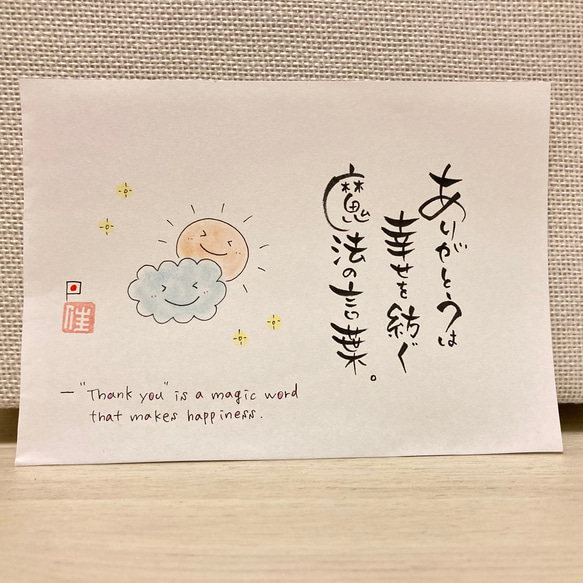 ありがとうは
幸せを紡ぐ
魔法の言葉。
佳
— "Thank you" is a magic word
that makes happiness.